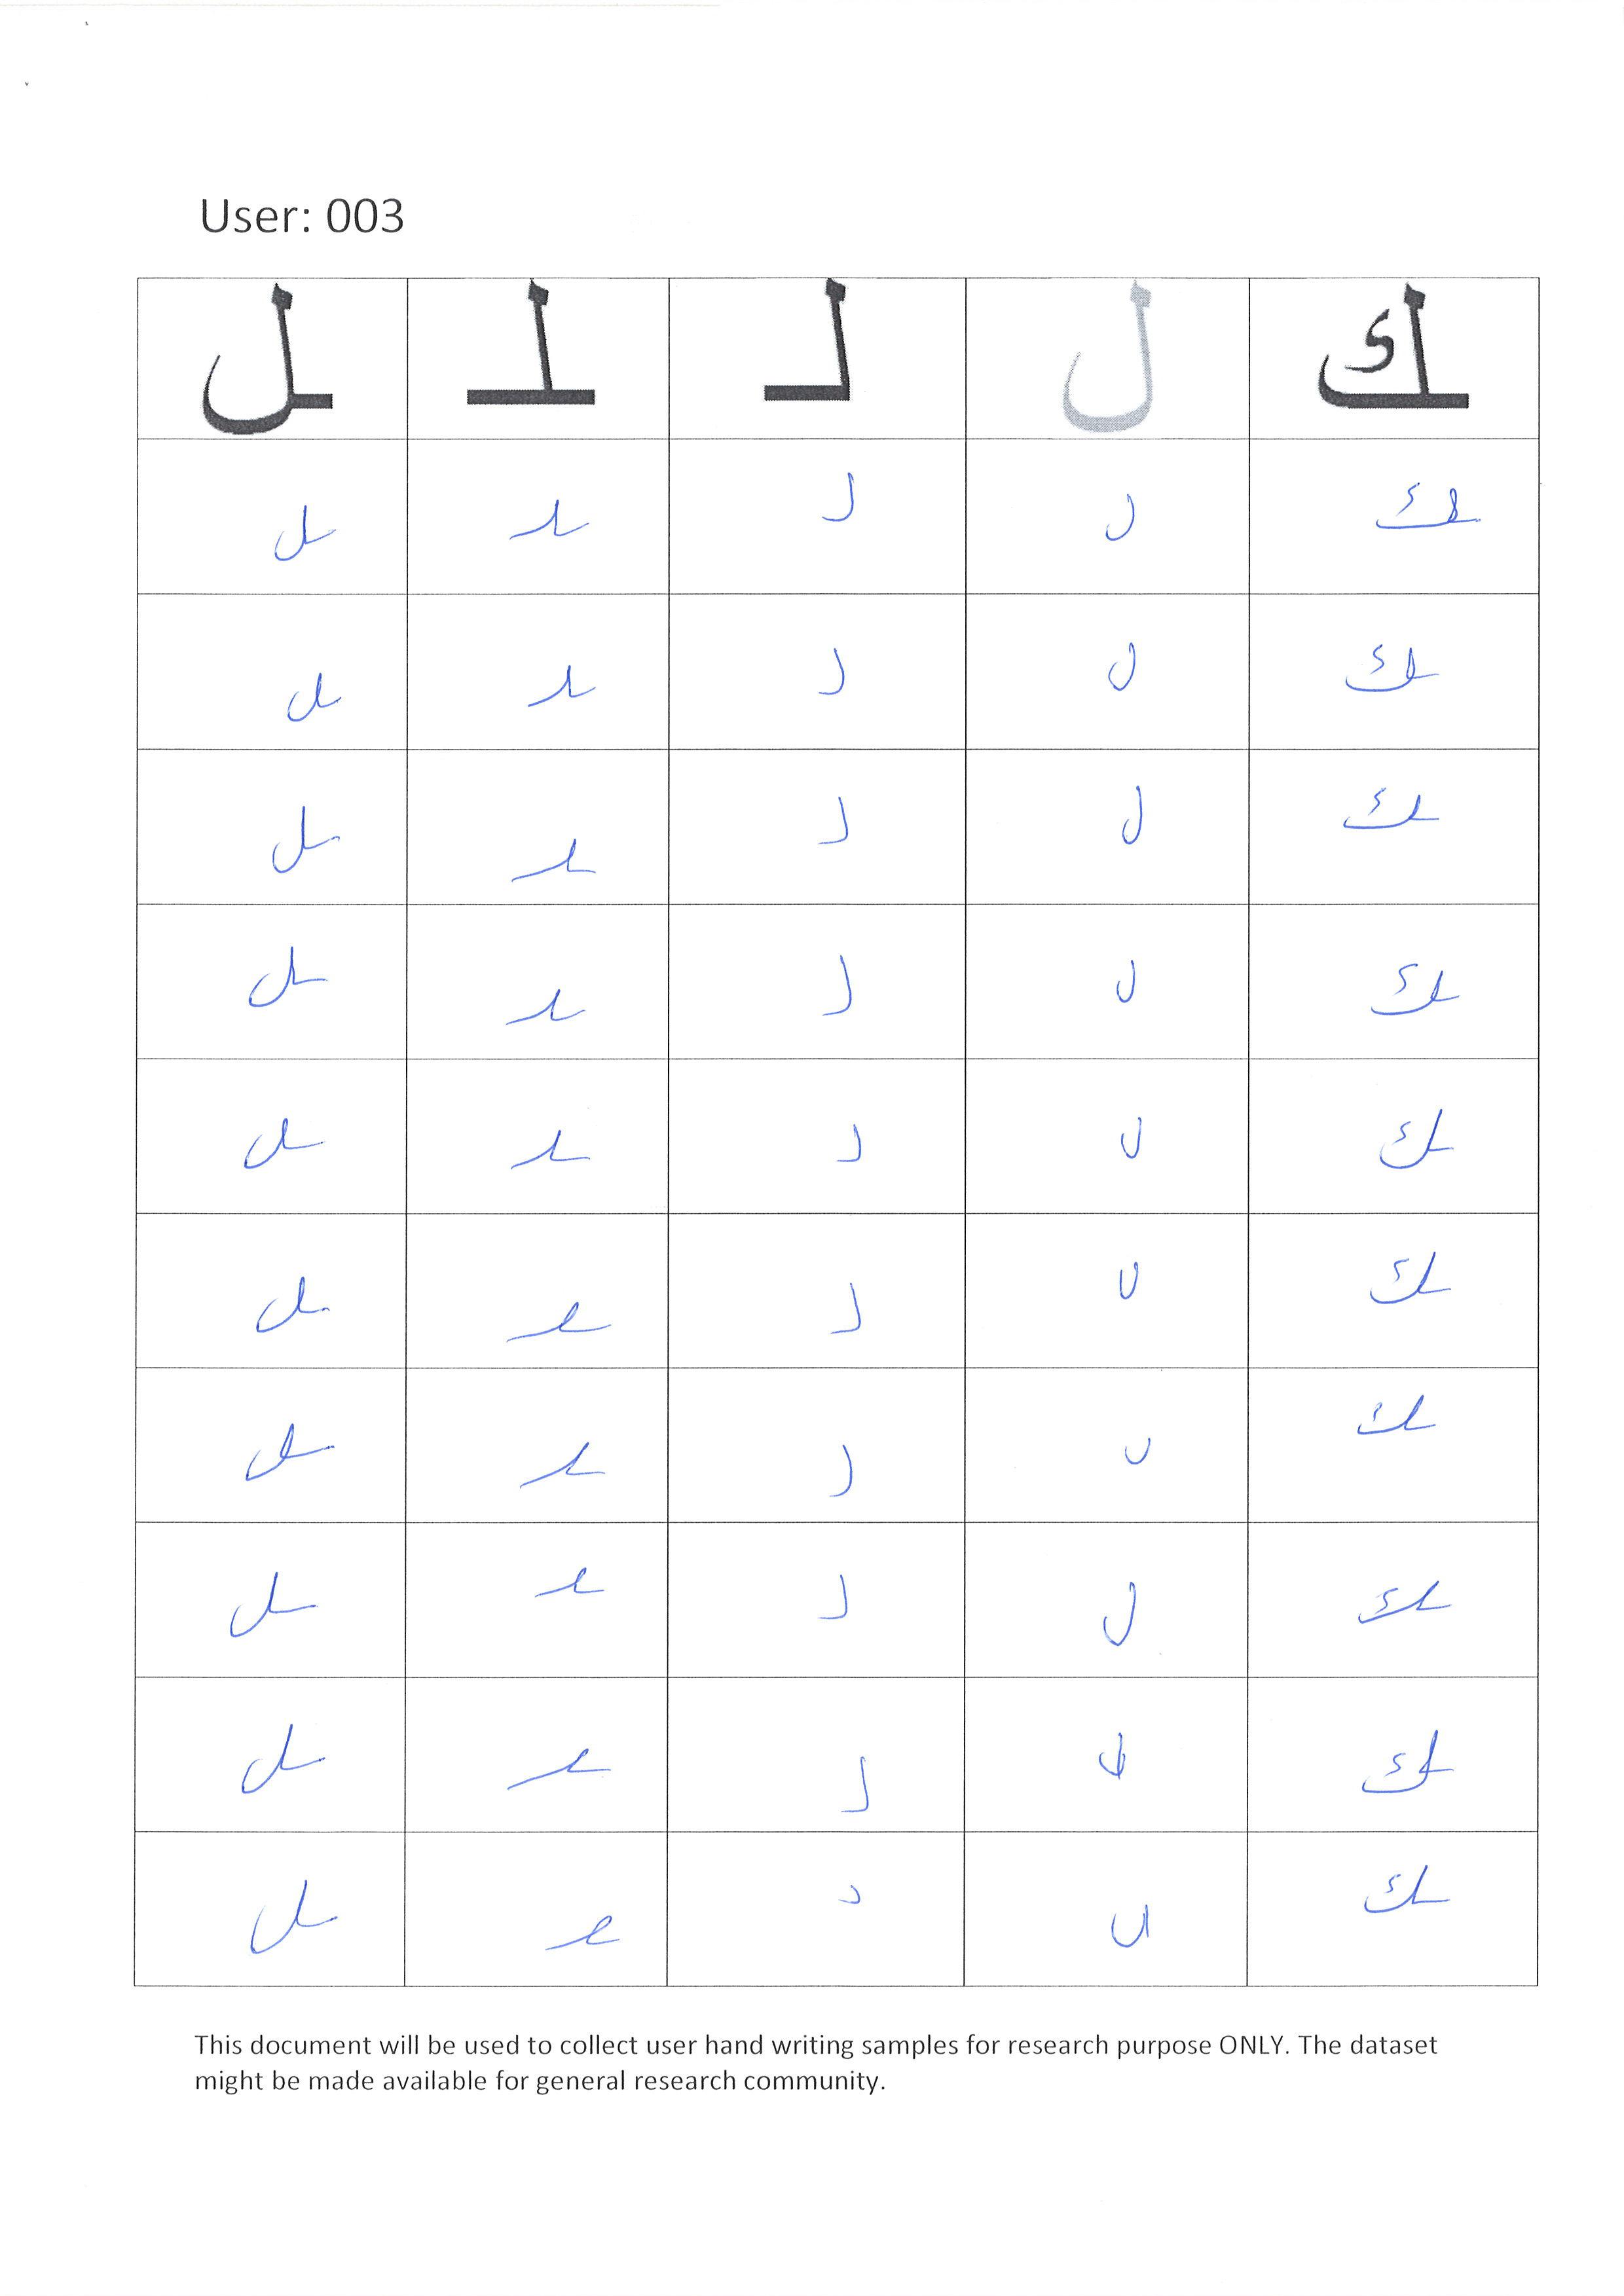 User: 003
ك ل لـ ـلـ ـل
ـك ل لـ ـلـ ـل
ـك ل لـ ـلـ ـل
ـك ل لـ ـلـ ـل
ـك ل لـ ـلـ ـل
ـك ل لـ ـلـ ـل
ـك ل لـ ـلـ ـل
ـك ل لـ ـلـ ـل
ـك ل لـ ـلـ ـل
ـك ل لـ ـلـ ـل
ـك ل لـ ـلـ ـل
This document will be used to collect user hand writing samples for research purpose ONLY. The dataset
might be made available for general research community.